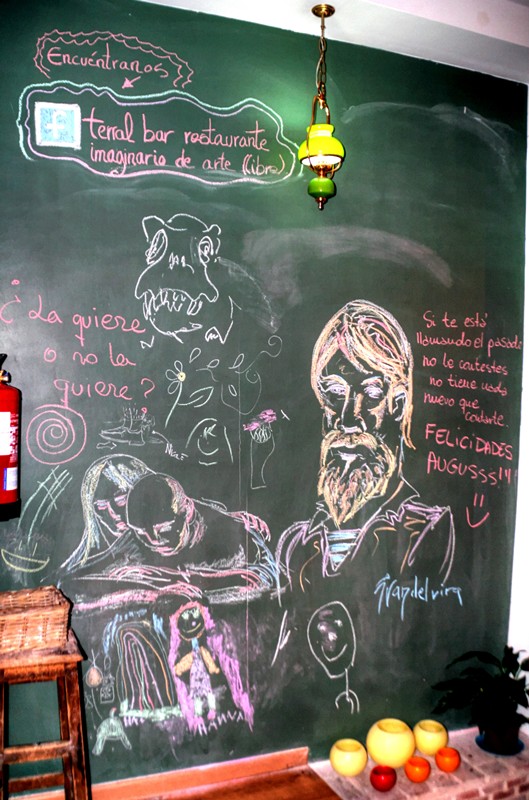 Encuéntranos
terral bar restaurante
imaginario de arte (libre)
¿ La quiere
o no la
quiere ?
Si te está
llamando el pasado
no le contestes
no tiene nada
nuevo que
contarte.
FELICIDADES
AUGUSSS!!!
HANNA